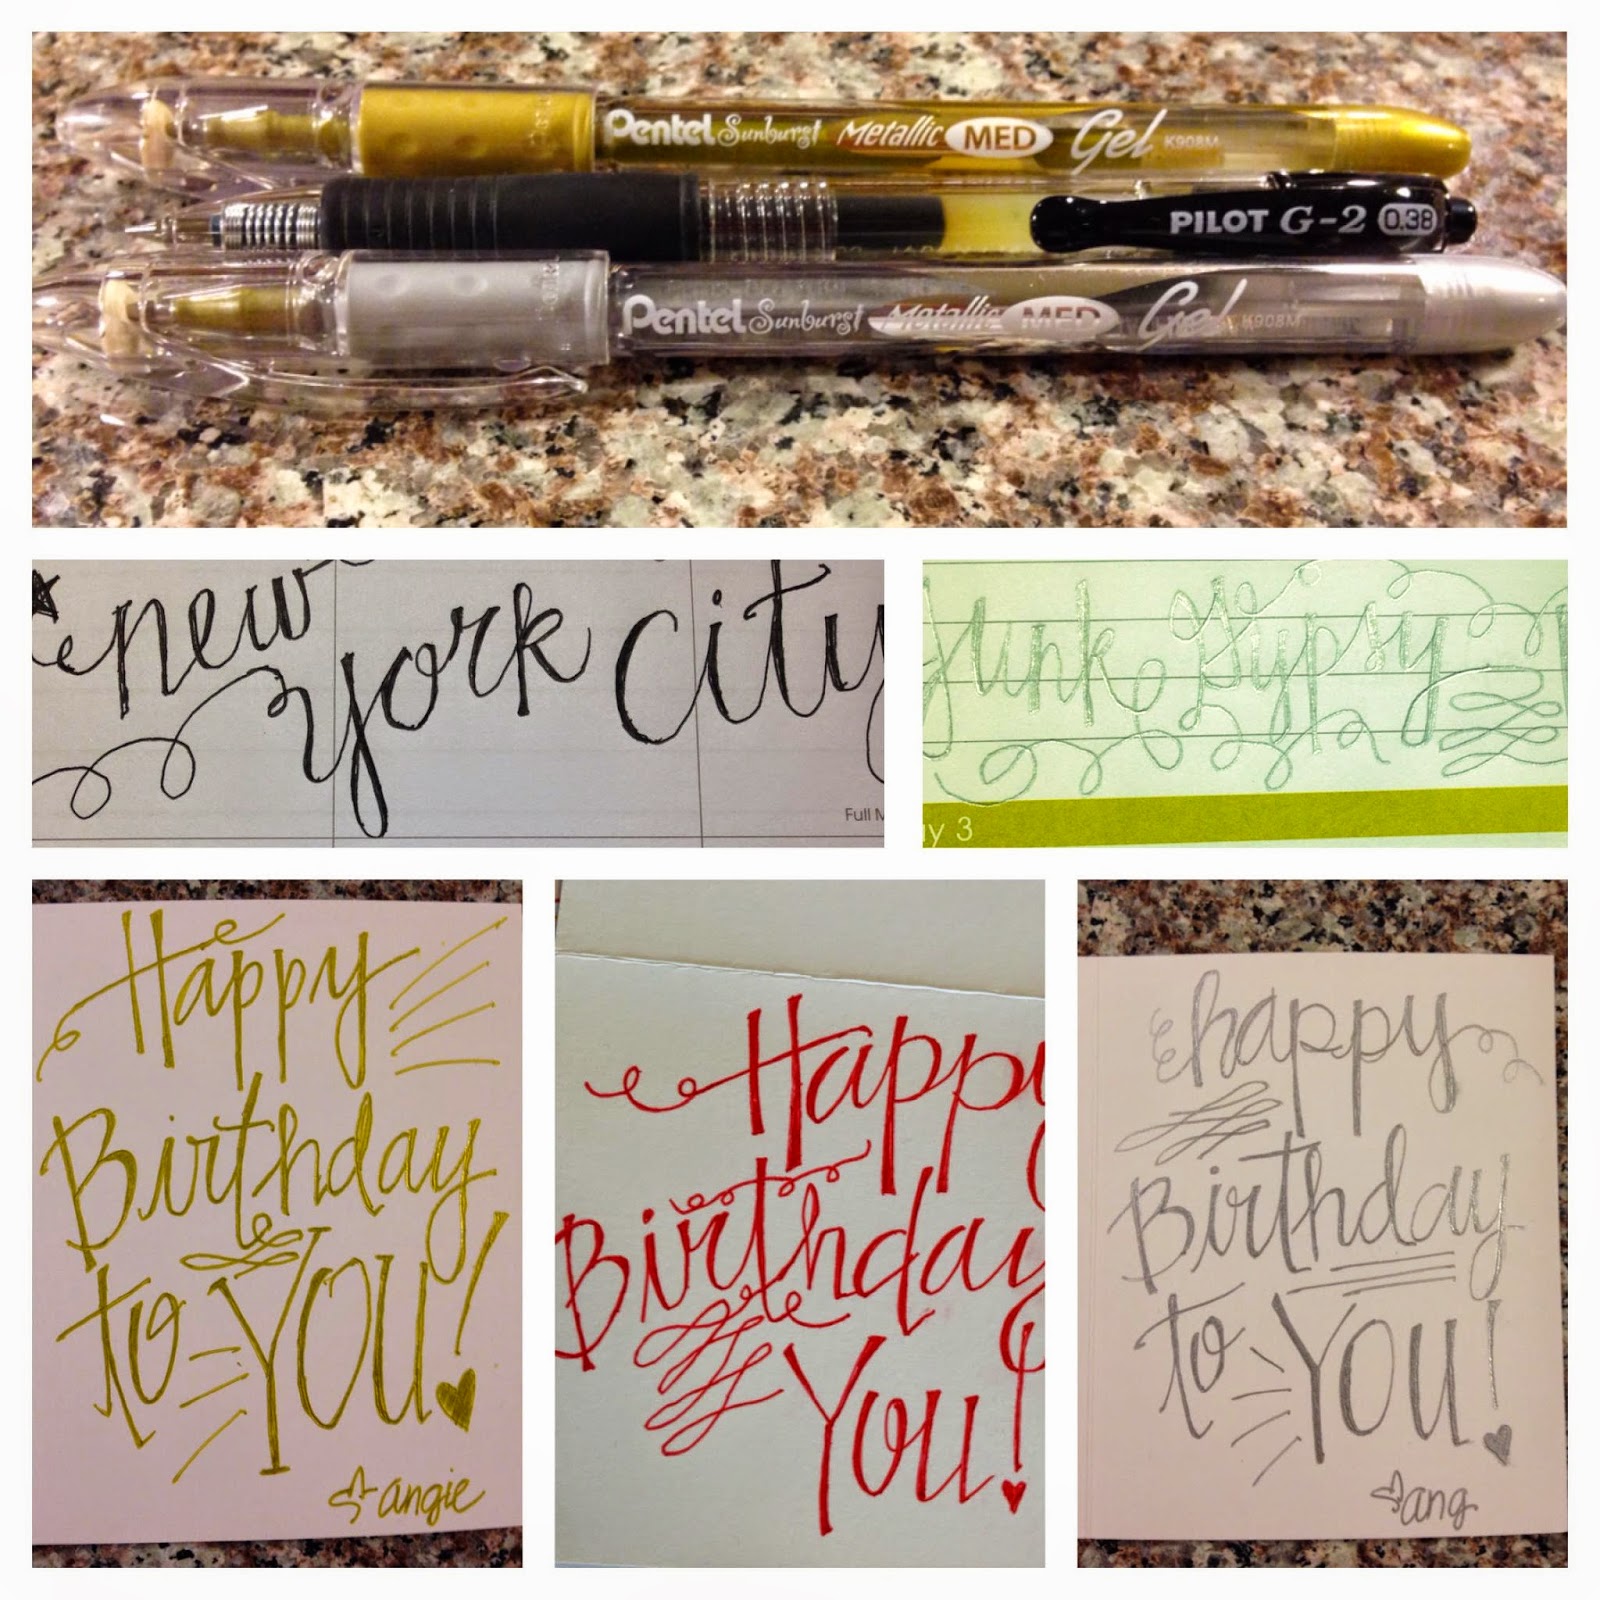 Pentel Sunburst Metallic MED Gel K908M
PILOT G-2 0.38
Pentel Sunburst Metallic MED Gel K908M
new
York City
Full M
Junk Gypsy
ay 3
Happy
Birthday
to YOU!
angie
Happy
Birthday
to
You!
happy
Birthday
to YOU!
ang